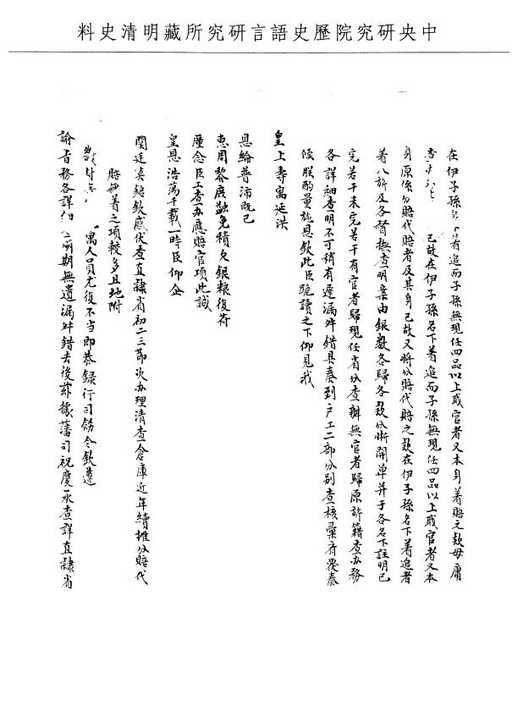 中央研究院歷史語言研究所藏明清史料
在伊子孫名下著追而子孫無現任四品以上職官者又本身著賠之款毋庸
查 已故在伊子孫名下著追而子孫無現任四品以上職官者又本
身原係分賠代賠者及其身已故又將分賠代賠之款在伊子孫名下著追者
著八旗及各督撫查明案由銀數各歸各款分晰開單并于各名下註明已
完若干未完若干有官者歸現任省分查辦無官者歸原旂籍查辦務
各詳細查明不可稍有遲漏舛錯具奏到戶工二部分別查核彙齊覆奏
候朕酌量施恩欽此臣跪讀之下仰見我
皇上壽寓延洪
恩綸普沛既已
惠周黎庶豁免積欠銀糧復荷
廑念臣工查辦應賠官項此誠
皇恩浩蕩千載一時臣仰企
闓廷凟錯欽感伏查直隸省初二三節次辦理清查倉庫近年續攤分賠代
賠認著之項較多且地附
寓人員尤復不少當即恭錄行司飭令欽遵
諭旨務各詳細 期無遺漏舛錯去後茲據藩司祝慶承查詳直隸省